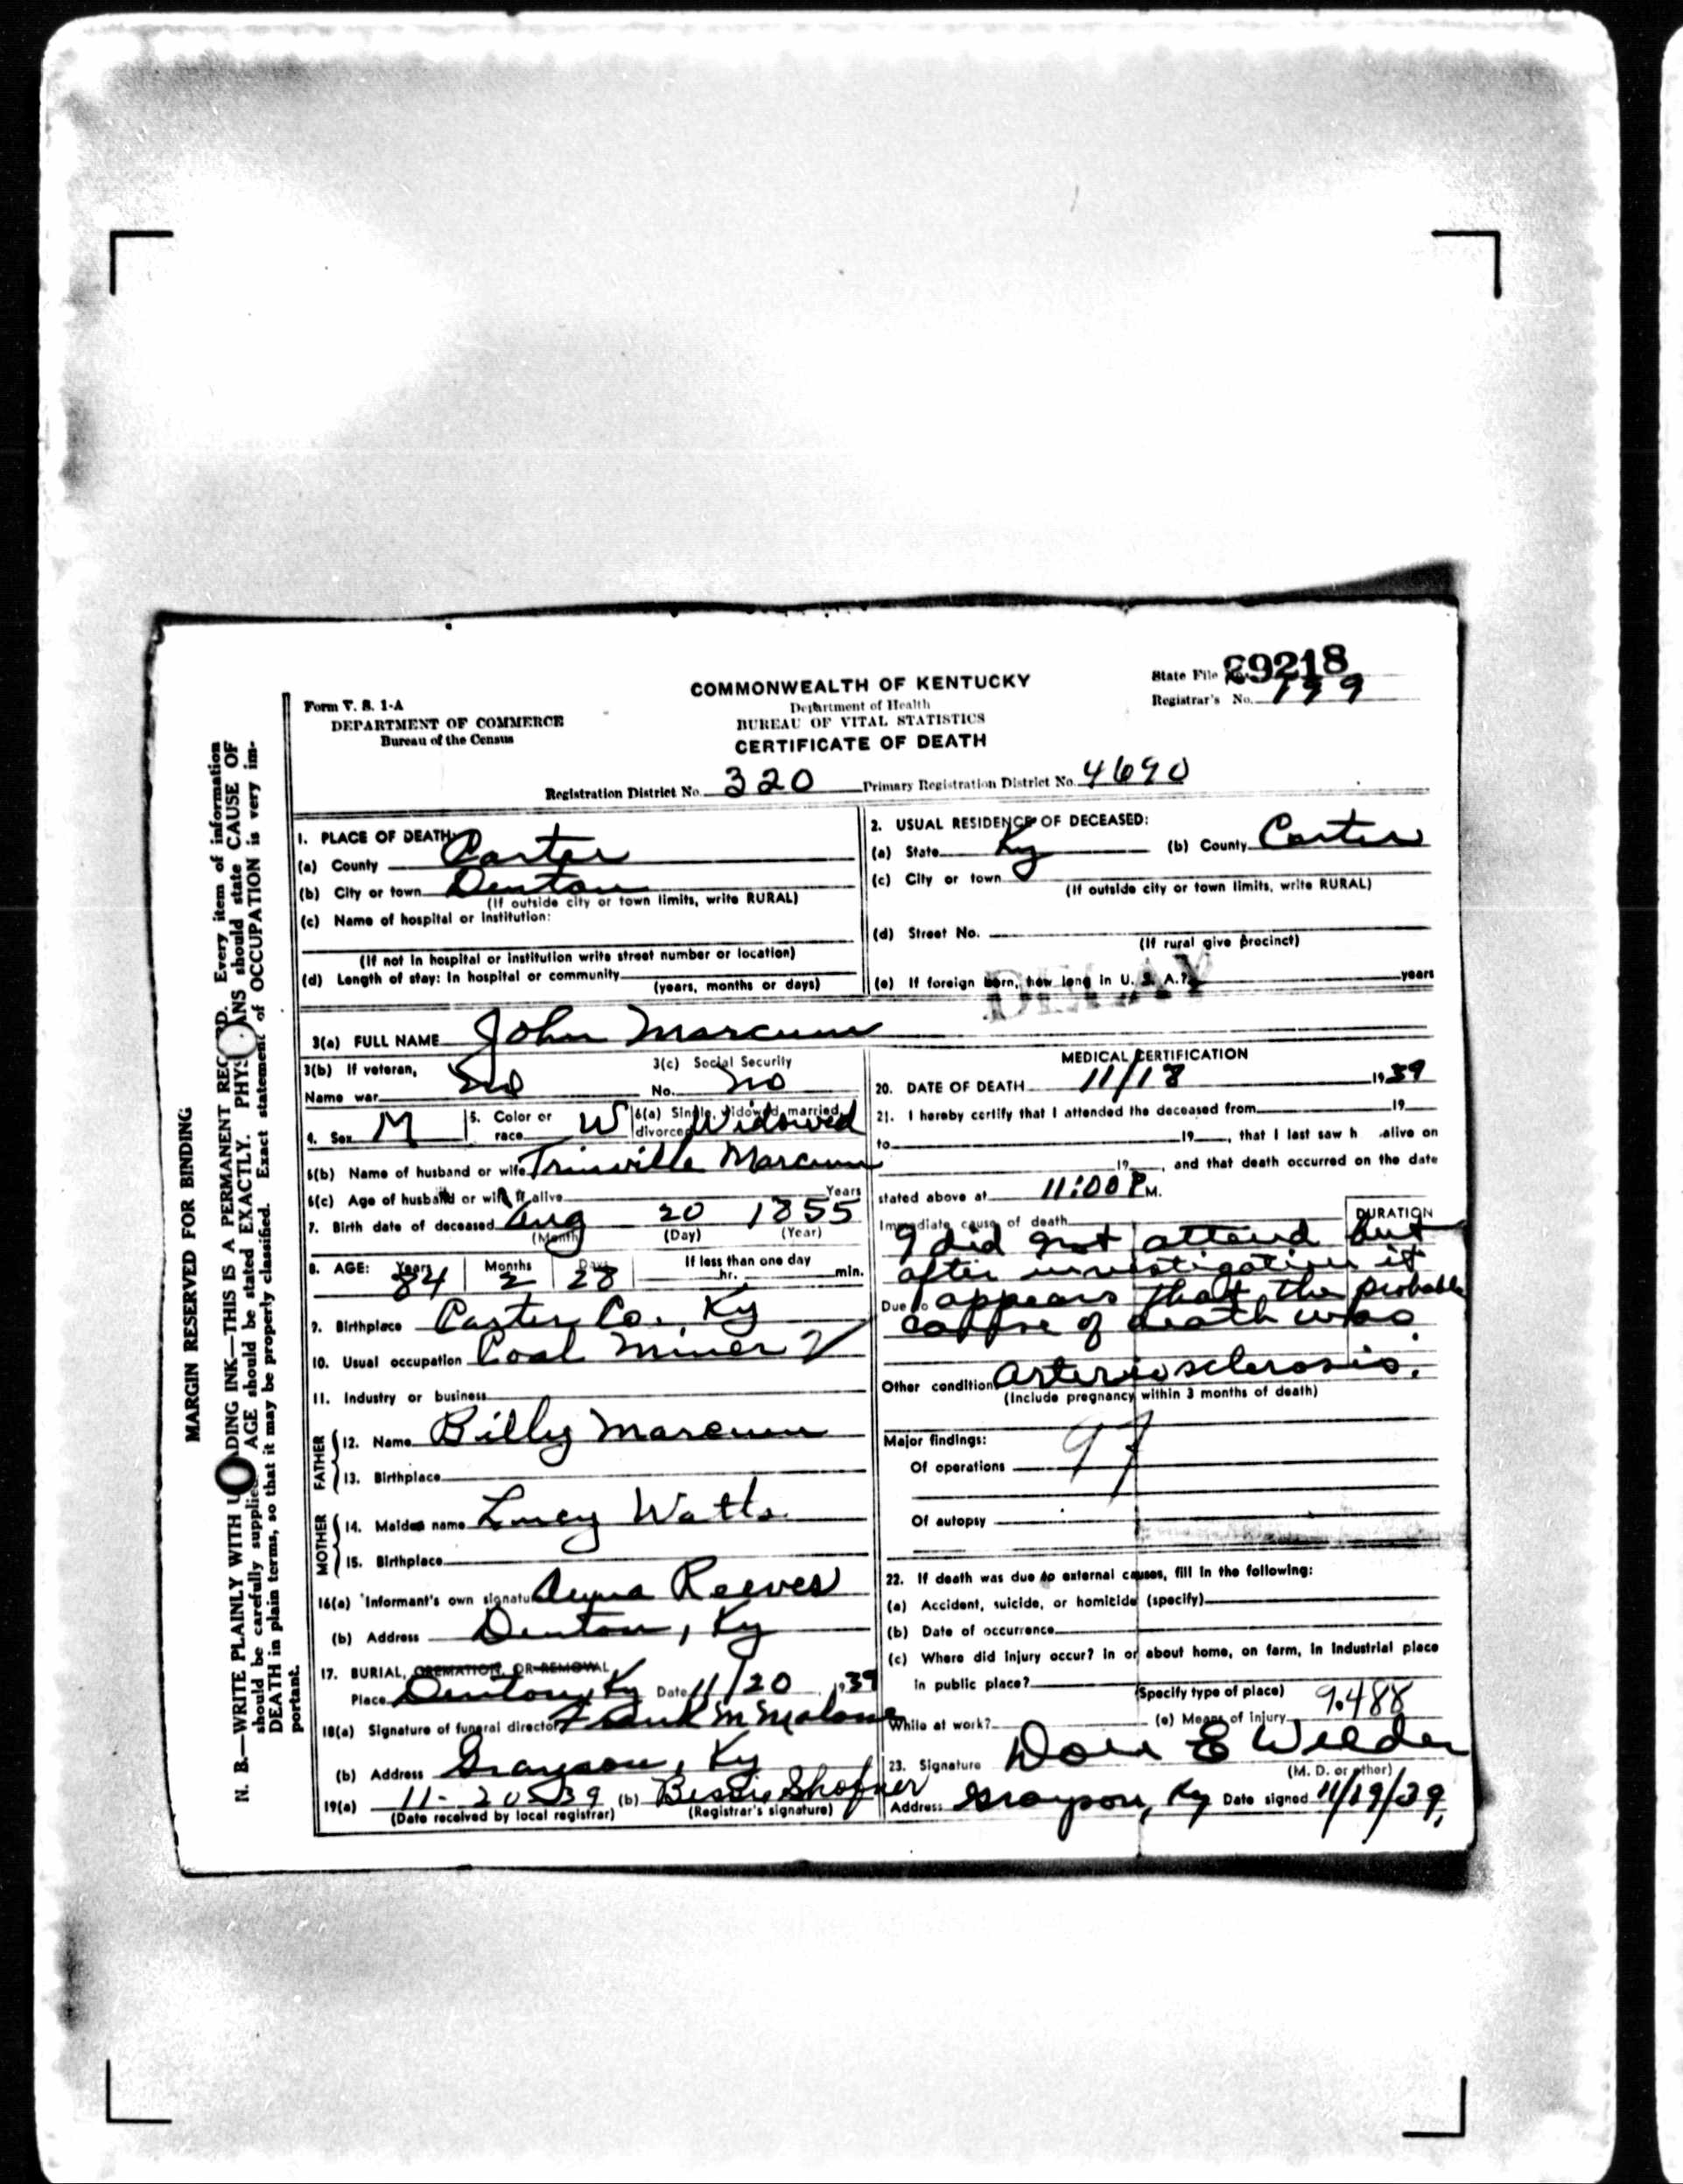 State File No. 29218
Registrar's No. 199
COMMONWEALTH OF KENTUCKY
Form V. S. 1-A
Department of Health
DEPARTMENT OF COMMERCE
BUREAU OF VITAL STATISTICS
Bureau of the Census
CERTIFICATE OF DEATH
Registration District No. 320 Primary Registration District No. 4690
MARGIN RESERVED FOR BINDING
N. B.—WRITE PLAINLY WITH U DING INK—THIS IS A PERMANENT REC D. Every item of information
should be carefully supplied. AGE should be stated EXACTLY. PHYS ANS should state CAUSE OF
DEATH in plain terms, so that it may be properly classified. Exact statement of OCCUPATION is very im-
portant.
1. PLACE OF DEATH:
(a) County Carter
(b) City or town Denton
(If outside city or town limits, write RURAL)
(c) Name of hospital or institution:
(If not in hospital or institution write street number or location)
(d) Length of stay: In hospital or community
(years, months or days)
2. USUAL RESIDENCE OF DECEASED:
(a) State Ky (b) County Carter
(c) City or town
(If outside city or town limits, write RURAL)
(d) Street No.
(If rural give precinct)
(e) If foreign born, how long in U. S. A.? years
DELAY
3(a) FULL NAME John Marcum
3(b) If veteran, 3(c) Social Security
Name war no No. no
4. Sex M 5. Color or race W 6(a) Single, widowed, married, divorced Widowed
6(b) Name of husband or wife Trinville Marcum
6(c) Age of husband or wife if alive Years
7. Birth date of deceased Aug 20 1855
(Month) (Day) (Year)
8. AGE: Years Months Days If less than one day
84 2 28 hr. min.
9. Birthplace Carter Co., Ky
10. Usual occupation Coal Miner
11. Industry or business
FATHER
12. Name Billy Marcum
13. Birthplace
MOTHER
14. Maiden name Lucy Watts
15. Birthplace
16(a) Informant's own signature Anna Reeves
(b) Address Denton, Ky
17. BURIAL, CREMATION, OR REMOVAL
Place Denton, Ky Date 11/20 1939
18(a) Signature of funeral director Frank M Malone
(b) Address Grayson, Ky
19(a) 11-20-39 (b) Bessie Shofner
(Date received by local registrar) (Registrar's signature)
MEDICAL CERTIFICATION
20. DATE OF DEATH 11/18 1939
21. I hereby certify that I attended the deceased from 19
to 19 , that I last saw h alive on
19 , and that death occurred on the date
stated above at 11:00 P M.
Immediate cause of death DURATION
I did not attend but
after investigation it
Due to appears that the probable
cause of death was
Other conditions arteriosclerosis.
(Include pregnancy within 3 months of death)
Major findings: 97
Of operations
Of autopsy
22. If death was due to external causes, fill in the following:
(a) Accident, suicide, or homicide (specify)
(b) Date of occurrence
(c) Where did injury occur? In or about home, on farm, in industrial place
in public place?
(Specify type of place) 9.488
While at work? (e) Means of injury
23. Signature Don E Wilder
(M. D. or other)
Address Grayson, Ky Date signed 11/19/39